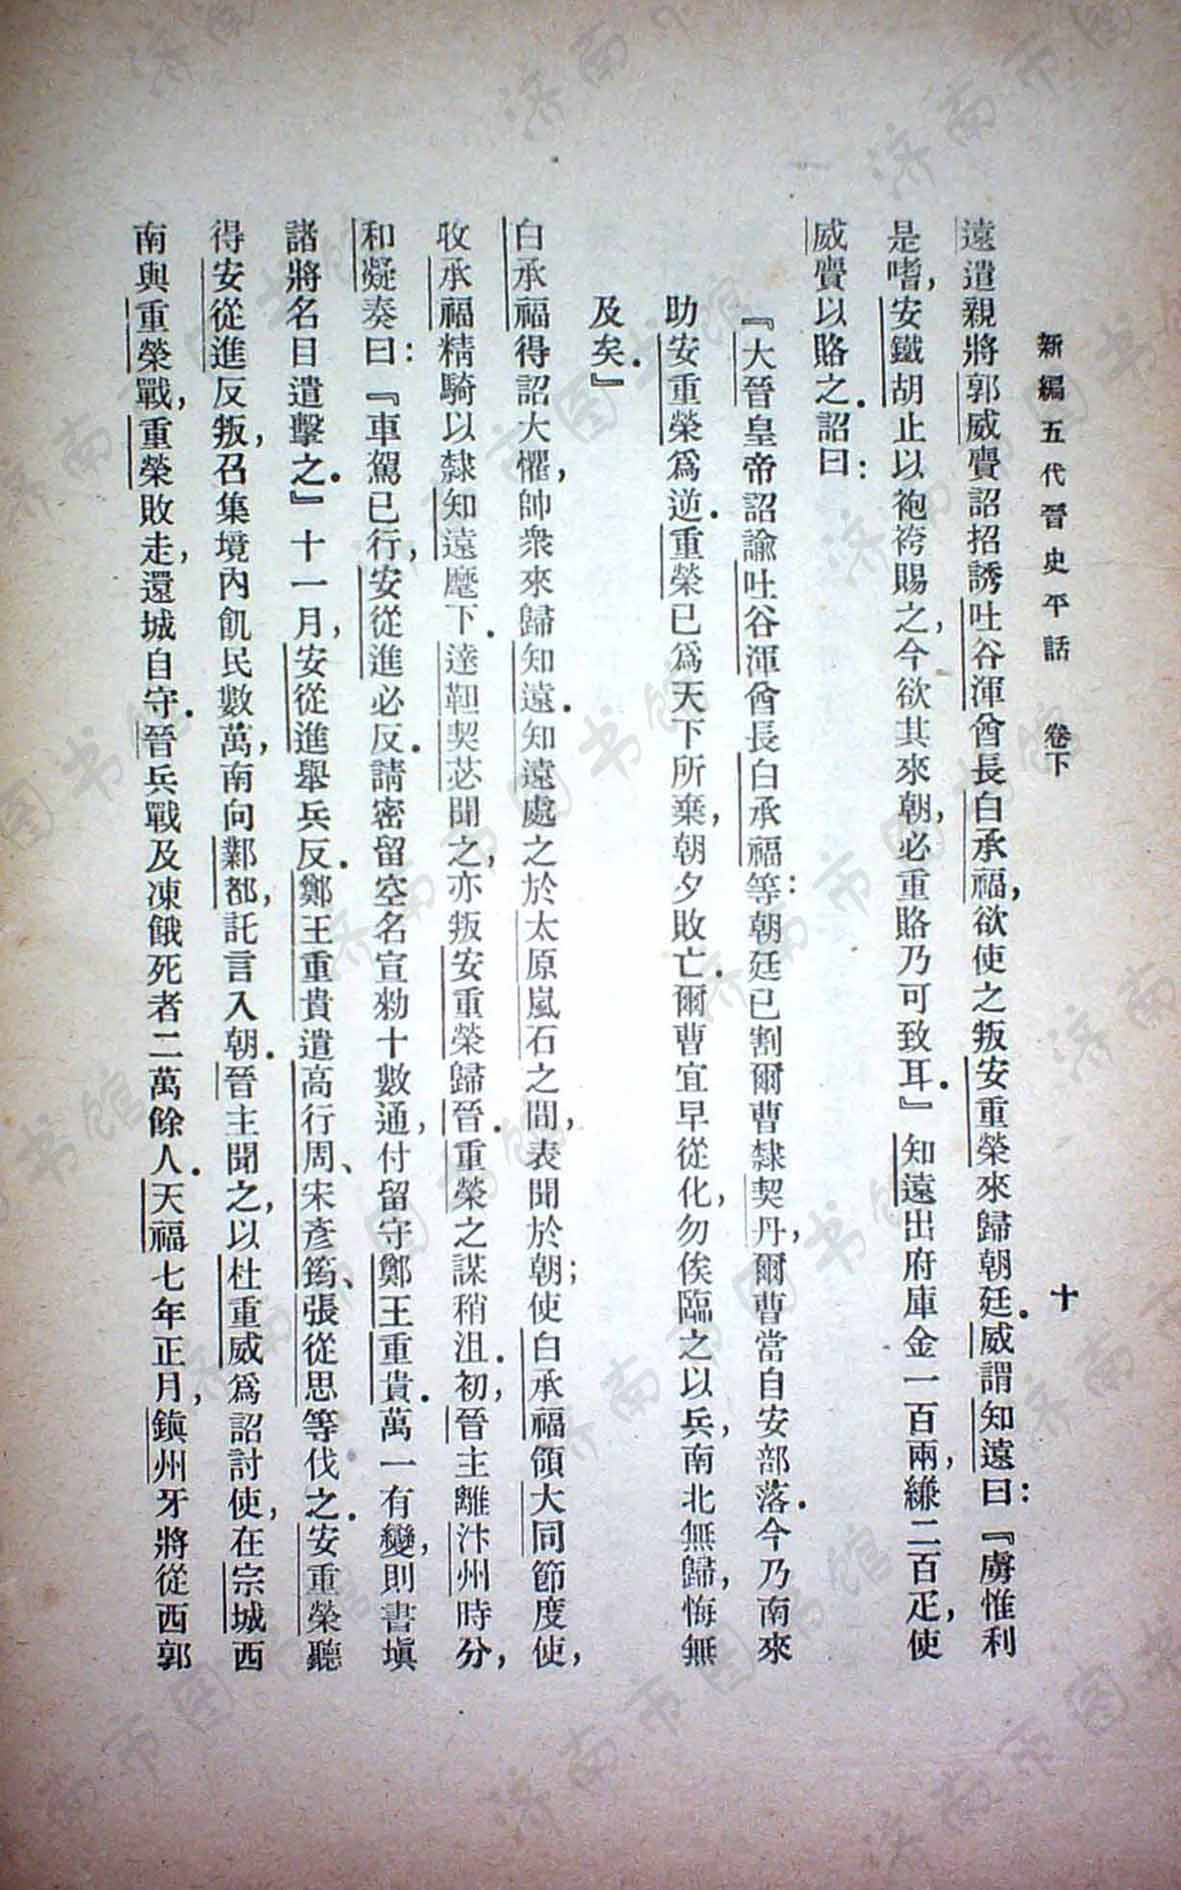 新編五代晉史平話　卷下　十
遠遣親將郭威賷詔招誘吐谷渾酋長白承福，欲使之叛安重榮來歸朝廷．威謂知遠曰：『虜惟利
是嗜，安鐵胡止以袍袴賜之，今欲其來朝，必重賂乃可致耳．』知遠出府庫金一百兩，縑二百疋，使
威賷以賂之．詔曰：
『大晉皇帝詔諭吐谷渾酋長白承福等：朝廷已割爾曹隸契丹，爾曹當自安部落．今乃南來
助安重榮爲逆．重榮已爲天下所棄，朝夕敗亡．爾曹宜早從化，勿俟臨之以兵，南北無歸，悔無
及矣．』
白承福得詔大懼，帥衆來歸知遠．知遠處之於太原嵐石之間，表聞於朝；使白承福領大同節度使，
收承福精騎以隸知遠麾下．達靼契苾聞之，亦叛安重榮歸晉．重榮之謀稍沮．初，晉主離汴州時分，
和凝奏曰：『車駕已行，安從進必反．請密留空名宣勑十數通，付留守鄭王重貴．萬一有變，則書填
諸將名目遣擊之．』十一月，安從進舉兵反．鄭王重貴遣高行周、宋彥筠、張從思等伐之．安重榮聽
得安從進反叛，召集境內飢民數萬，南向鄴都，託言入朝．晉主聞之，以杜重威爲詔討使，在宗城西
南與重榮戰，重榮敗走，還城自守．晉兵戰及凍餓死者二萬餘人．天福七年正月，鎮州牙將從西郭
济南市图书馆